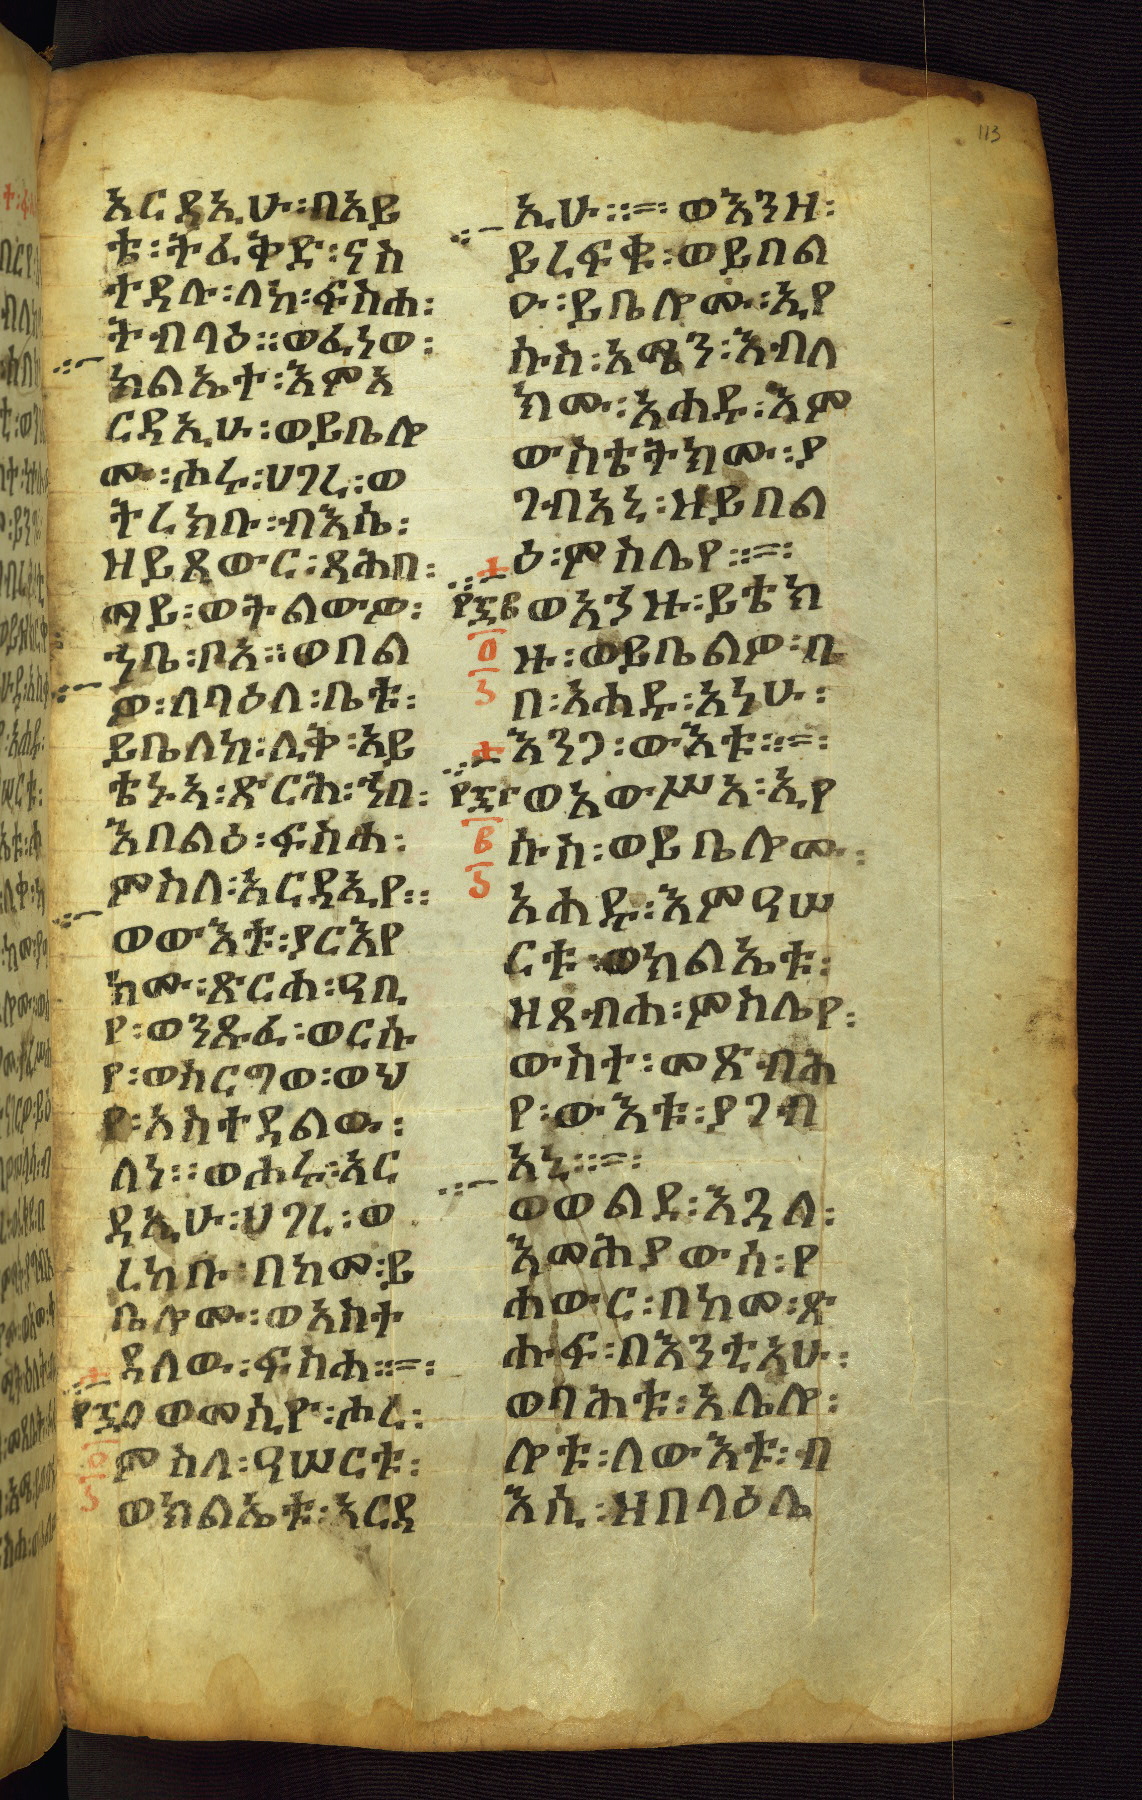 113
አርዳኢሁ፡በአይ
ቴ፡ትፈቅድ፡ናስ
ተዳሉ፡ለከ፡ፍስሐ፡
ትብላዕ።ወፈነወ፡
ክልኤተ፡እምአ
ርዳኢሁ፡ወይቤሎ
ሙ፡ሐሩ፡ሀገረ፡ወ
ትረክቡ፡ብእሴ፡
ዘይጸውር፡ጻሕበ፡
ማይ፡ወትልውዎ፡
ኀቤ፡ቦአ።ወበል
ዎ፡ለባዕለ፡ቤቱ፡
ይቤለከ፡ሊቅ፡አይ
ቴኑአ፡ጽርሕ፡ኀበ፡
እበልዕ፡ፍስሐ፡
ምስለ፡አርዳኢየ።
ወውእቱ፡ያርእየ
ክሙ፡ጽርሐ፡ዓቢ
የ፡ወንጹፈ፡ወርሱ
የ፡ወስርግወ፡ወህ
የ፡አስተዳልው፡
ለነ።ወሐሩ፡አር
ዳኢሁ፡ሀገረ፡ወ
ረከቡ፡በከመ፡ይ
ቤሎሙ፡ወአስተ
ዳለው፡ፍስሐ።=፡
ወመስዮ፡ሐረ፡
ምስለ፡ዓሠርቱ፡
ወክልኤቱ፡አርዳ
ኢሁ።=፡ወእንዘ፡
ይረፍቁ፡ወይበል
ዑ፡ይቤሎሙ፡ኢየ
ሱስ፡አማን፡እብለ
ክሙ፡አሐዱ፡እም
ውስቴትክሙ፡ያ
ገብአኒ፡ዘይበል
ዕ፡ምስሌየ።=፡
ወአኀዙ፡ይቴክ
ዙ፡ወይቤልዎ፡በ
በ፡አሐዱ፡አነሁ፡
እንጋ፡ውእቱ።=፡
ወአውሥአ፡ኢየ
ሱስ፡ወይቤሎሙ፡
አሐዱ፡እምዓሠ
ርቱ፡ወክልኤቱ፡
ዘጸብሐ፡ምስሌየ፡
ውስተ፡መጽብሕ
የ፡ውእቱ፡ያገብ
አኒ።=፡
ወወልደ፡እጓለ፡
እመሕያውሰ፡የ
ሐውር፡በከመ፡ጽ
ሑፍ፡በእንቲአሁ፡
ወባሕቱ፡አሌሎ፡
ሎቱ፡ለውእቱ፡ብ
እሲ፡ዘበላዕሌ